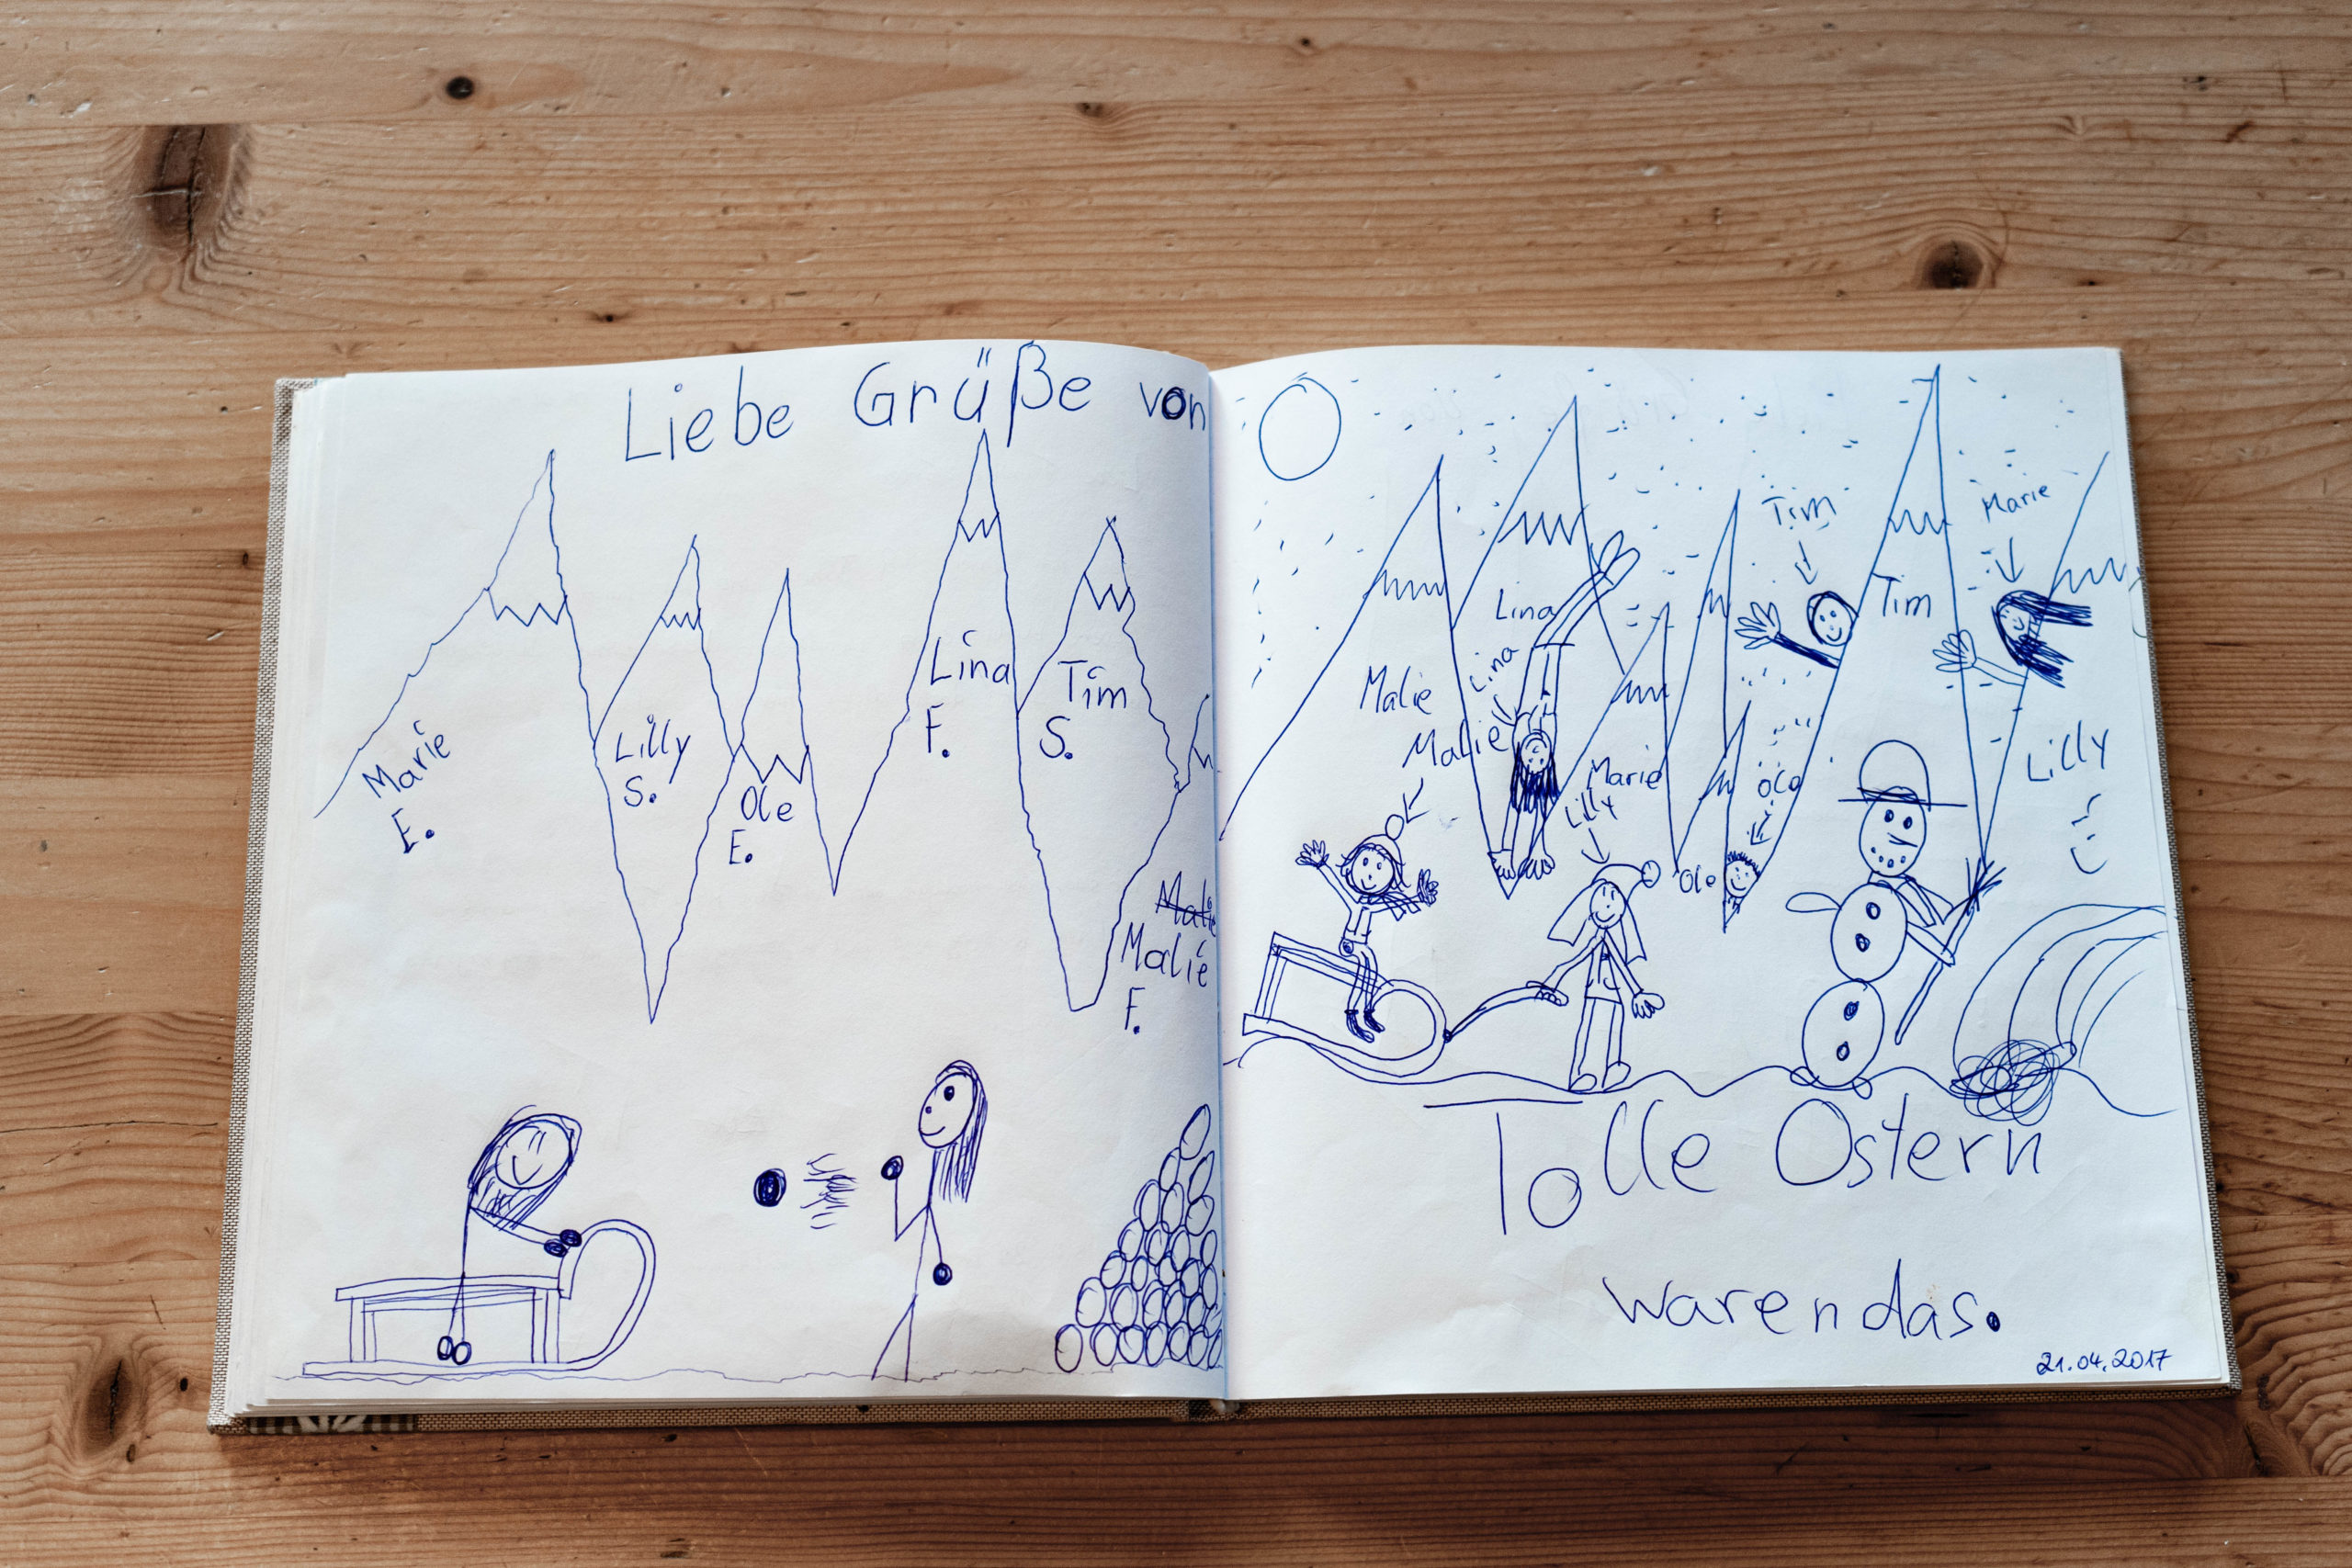 Liebe Grüße von
Marie
E.
Lilly
S.
Ole
E.
Lina
F.
Tim
S.
Malie
Malie
F.
Tim
Marie
Lina
Tim
Lina
Malie
Malie
Marie
Lilly
Ole
Ole
Lilly
Tolle Ostern
waren das.
21.04.2017